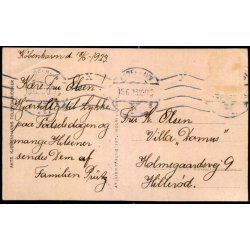 København d. 15/6 1923.
Kære Fru Olsen
Hjerteligst til Lykke
paa Fødselsdagen og
mange Hilsener
sendes Dem af
Familien
Fru K. Olsen
Villa "Domus"
Holmegaardsvej 9
Hillerød.